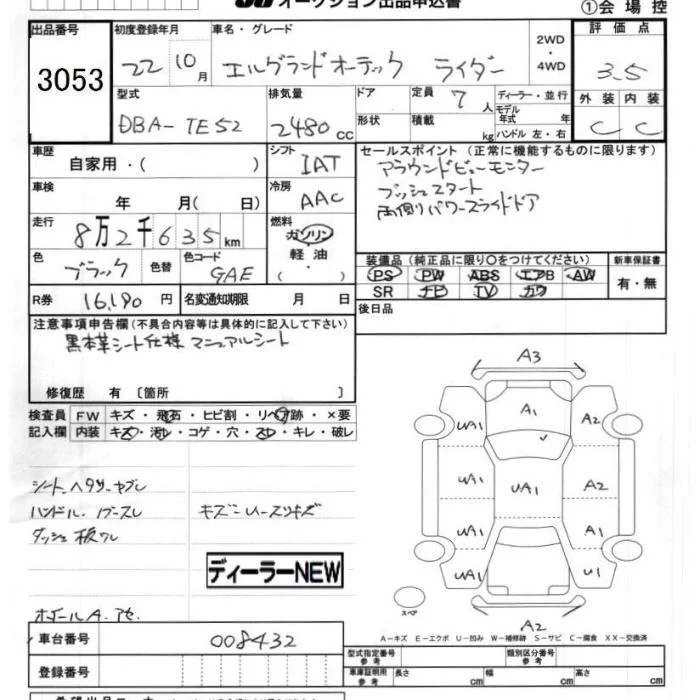 オークション出品申込書
①会場控
出品番号 3053
初度登録年月 22 10月
車名・グレード エルグランドオーテック ライダー
2WD・4WD
評価点 3.5
外装 C 内装 C
型式 DBA-TE52
排気量 2480 CC
ドア 形状
定員 7人
積載 kg
ディーラー・並行
モデル年式 年
ハンドル 左・右
車歴 自家用・( )
シフト IAT
セールスポイント (正常に機能するものに限ります)
アラウンドビューモニター
プッシュスタート
両側パワースライドドア
車検 年 月( 日)
冷房 AAC
走行 8万2千635km
燃料 ガソリン 軽油 ( ・ )
色 ブラック 色替
色コード GAE
装備品 (純正品に限り○をつけてください)
新車保証書 有・無
PS PW ABS エアB AW
SR ナビ TV カワ
R券 16,190円
名変通知期限 月 日
後日品
注意事項申告欄(不具合内容等は具体的に記入して下さい)
黒本革シート仕様 マニュアルシート
修復歴 有 〔箇所 〕
検査員記入欄
FW キズ・飛石・ヒビ割・リペア跡・×要
内装 キズ・汚れ・コゲ・穴・スレ・キレ・破レ
シート ヘタリ ヤブレ
ハンドル、ノブスレ キズ
ダッシュ 板ワレ
ディーラーNEW
ホイールA.
A3
A1 A2
UA1
UA1 UA1 A2
UA1 A1
UA1 U1
スペア
A2
A－キズ E－エクボ U－凹み W－補修跡 S－サビ C－腐食 XX－交換済
車台番号 008432
登録番号
型式指定番号 参考
類別区分番号 参考
車庫証明用 参考 長さ cm 幅 cm 高さ cm